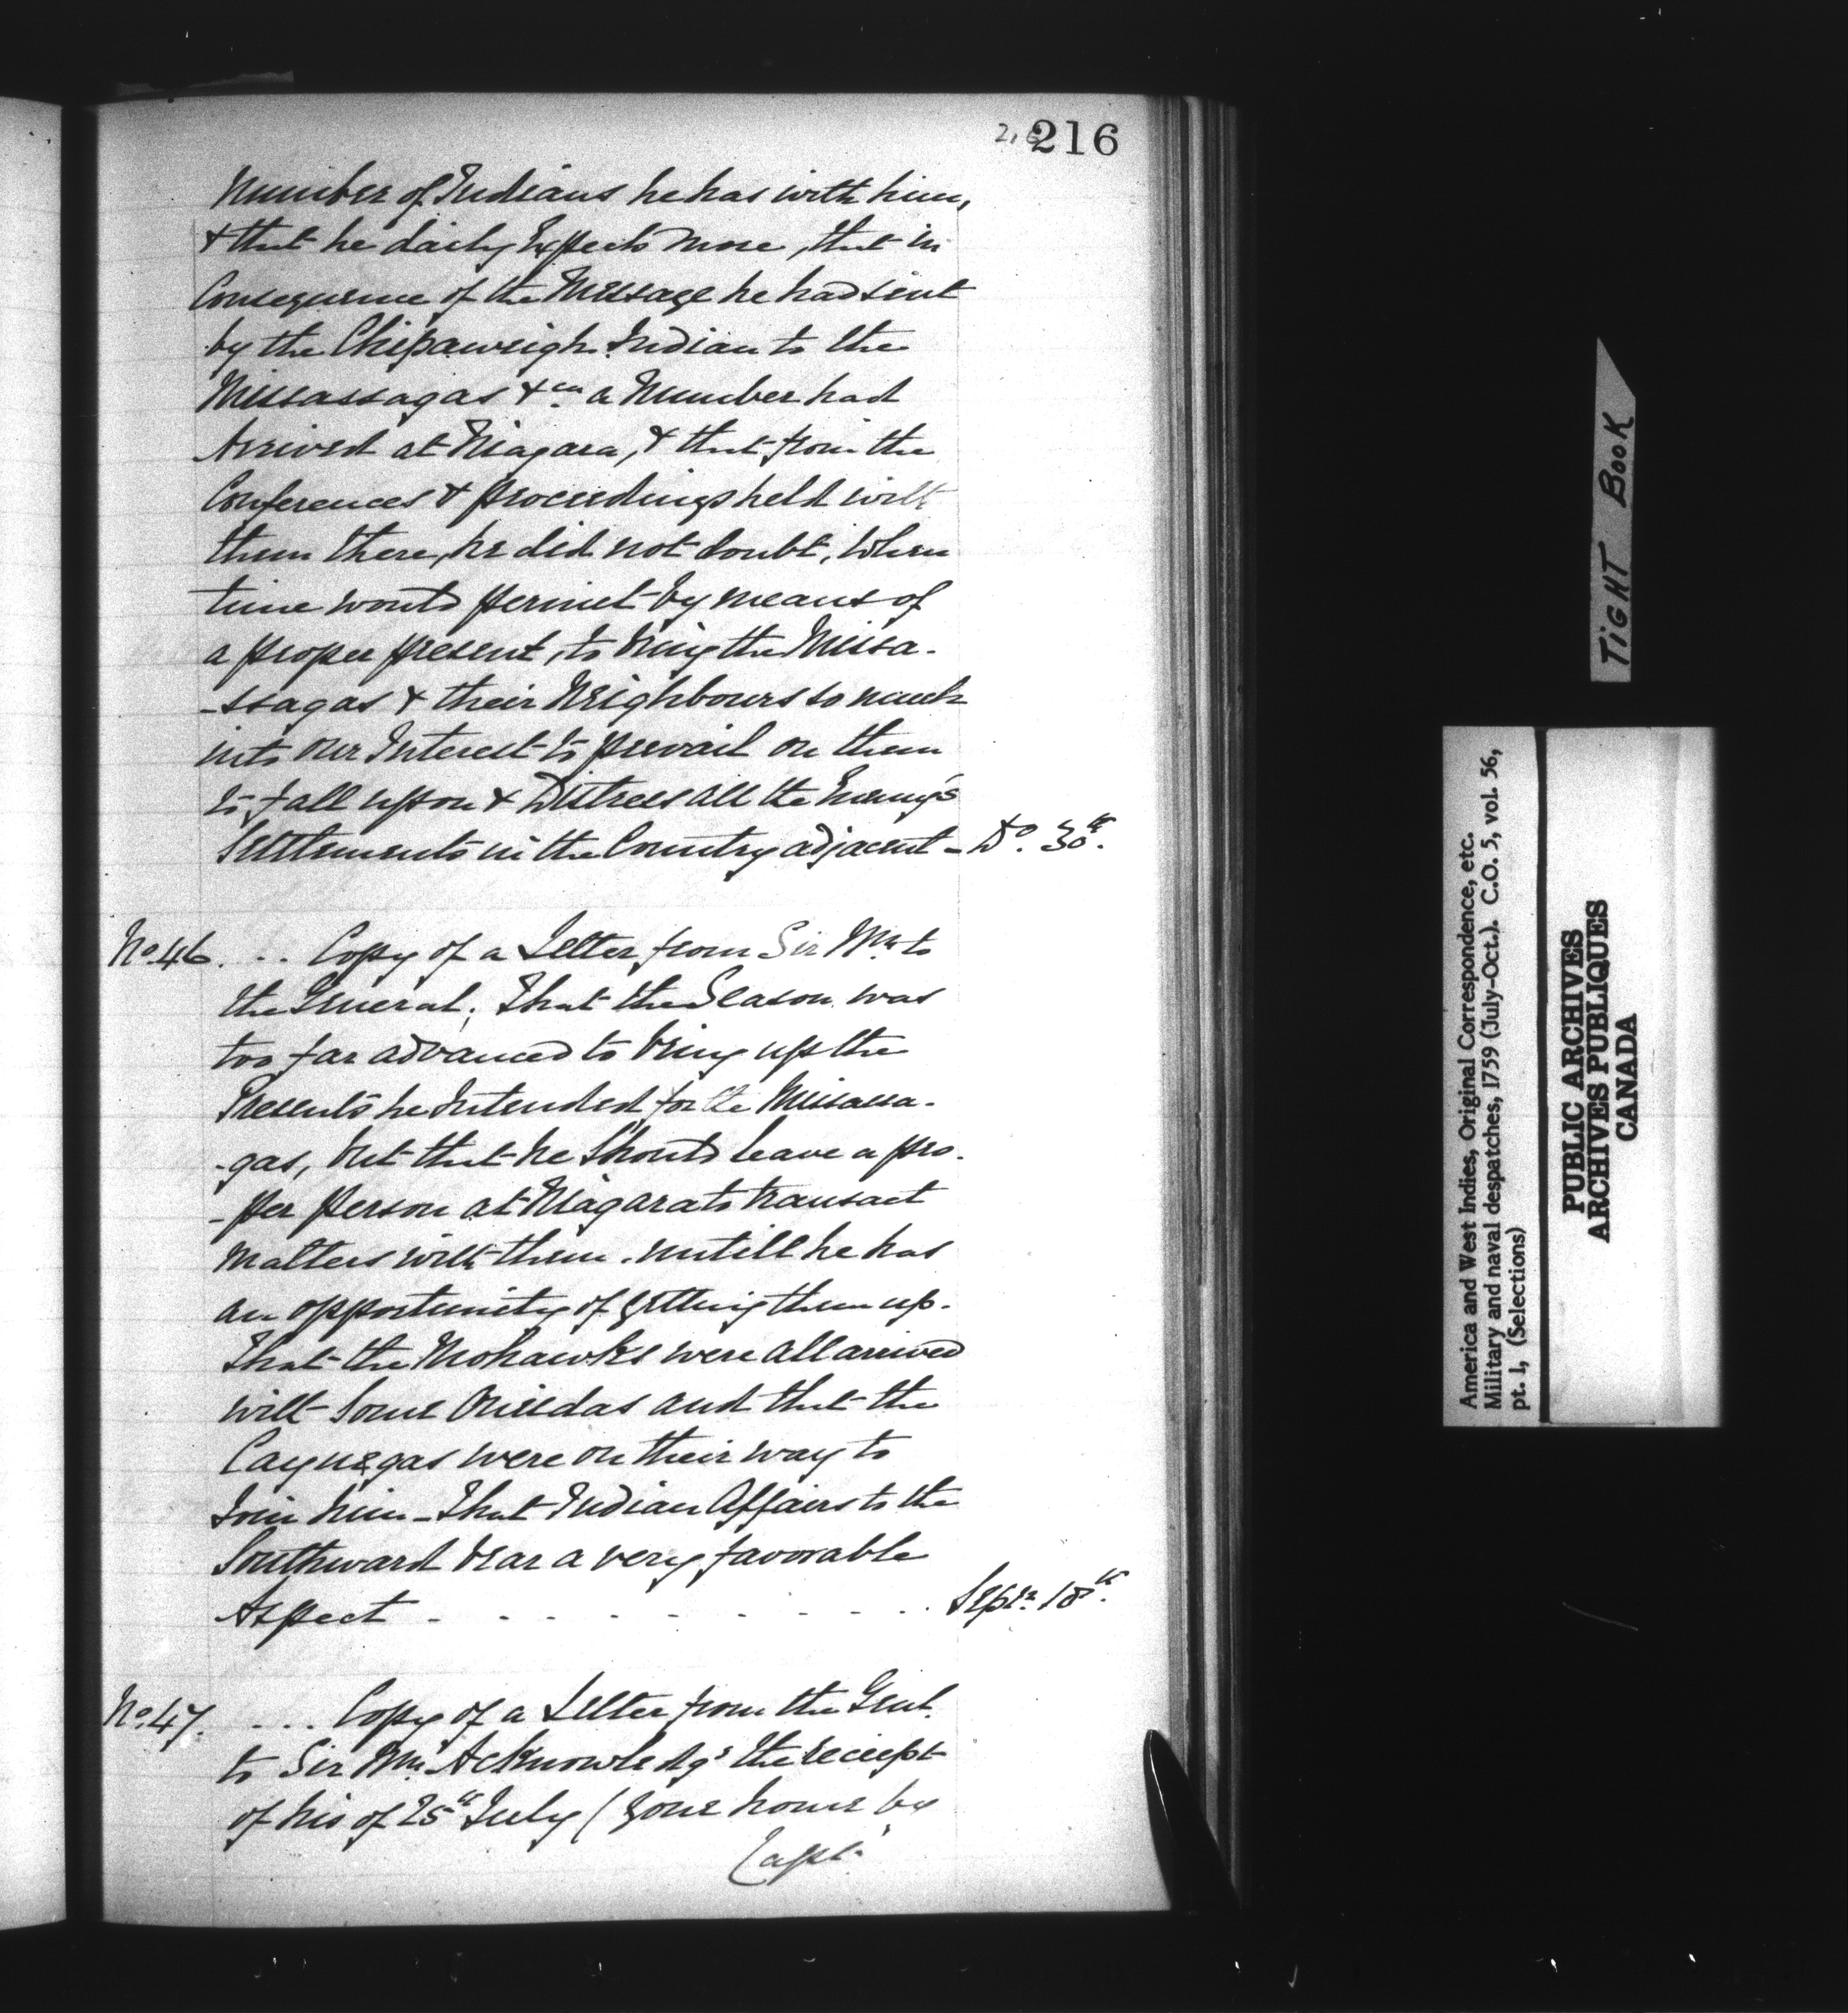 216
216
Number of Indians he has with him,
& that he daily Expects more, that in
Consequence of the Message he had sent
by the Chipaweigh Indian to the
Missassagas &ca a Number had
Arrived at Niagara, & that from the
Conferences & proceedings held with
them there, he did not doubt, when
time would permit by means of
a proper present, to bring the Missa-
-ssagas & their Neighbours so much
into our Interest to prevail on them
to fall upon & Distress all the Enemy's
Settlements in the Country adjacent - Do. 30th.
No. 46. .. Copy of a Letter from Sir Wm to
the General; That the Season was
too far advanced to bring up the
Presents he Intended for the Missassa-
-gas, but that he Should leave a pro-
-per person at Niagara to transact
Matters with them untill he has
an opportunity of getting them up.
That the Mohawks were all arrived
with Some Oniedas and that the
Cayuegas were on their way to
Join him - That Indian Affairs to the
Southward bear a very favorable
Aspect - - - - - - - - - . Septr. 18th.
No. 47. ... Copy of a Letter from the Genl.
to Sir Wm. Acknowledgs the receipt
of his of 25th July (gone home by
Capt.
TIGHT BOOK
America and West Indies, Original Correspondence, etc.
Military and naval despatches, 1759 (July-Oct.). C.O. 5, vol. 56,
pt. 1, (Selections)
PUBLIC ARCHIVES
ARCHIVES PUBLIQUES
CANADA